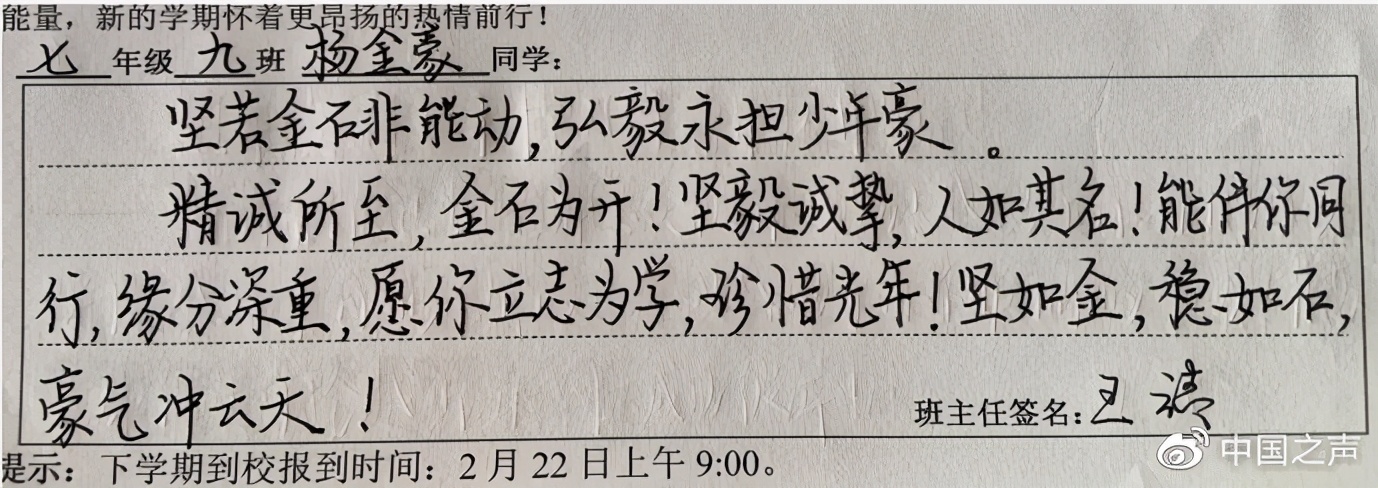 能量，新的学期怀着更昂扬的热情前行！
七年级九班 杨金豪 同学：
坚若金石非能动，弘毅永担少年豪。
精诚所至，金石为开！坚毅诚挚，人如其名！能伴你同
行，缘分深重，愿你立志为学，珍惜光年！坚如金，稳如石，
豪气冲云天！
班主任签名：王清
提示：下学期到校报到时间：2月22日上午9:00。
中国之声